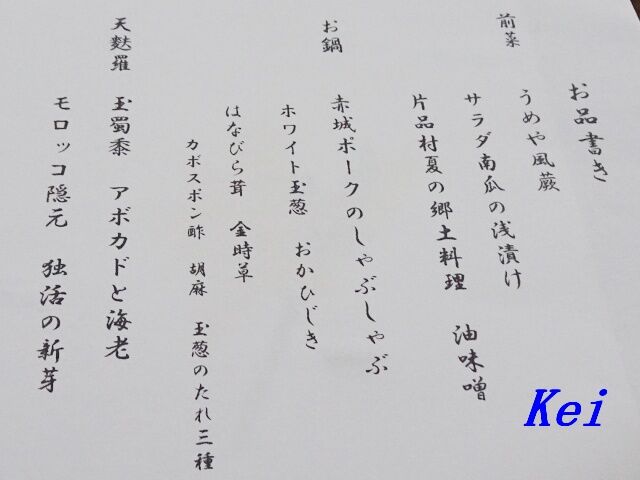 お品書き
前菜
うめや風蕨
サラダ南瓜の浅漬け
片品村夏の郷土料理 油味噌
お鍋
赤城ポークのしゃぶしゃぶ
ホワイト玉葱 おかひじき
はなびら茸 金時草
カボスポン酢 胡麻 玉葱のたれ三種
天麩羅 玉蜀黍 アボカドと海老
モロッコ隠元 独活の新芽
Kei